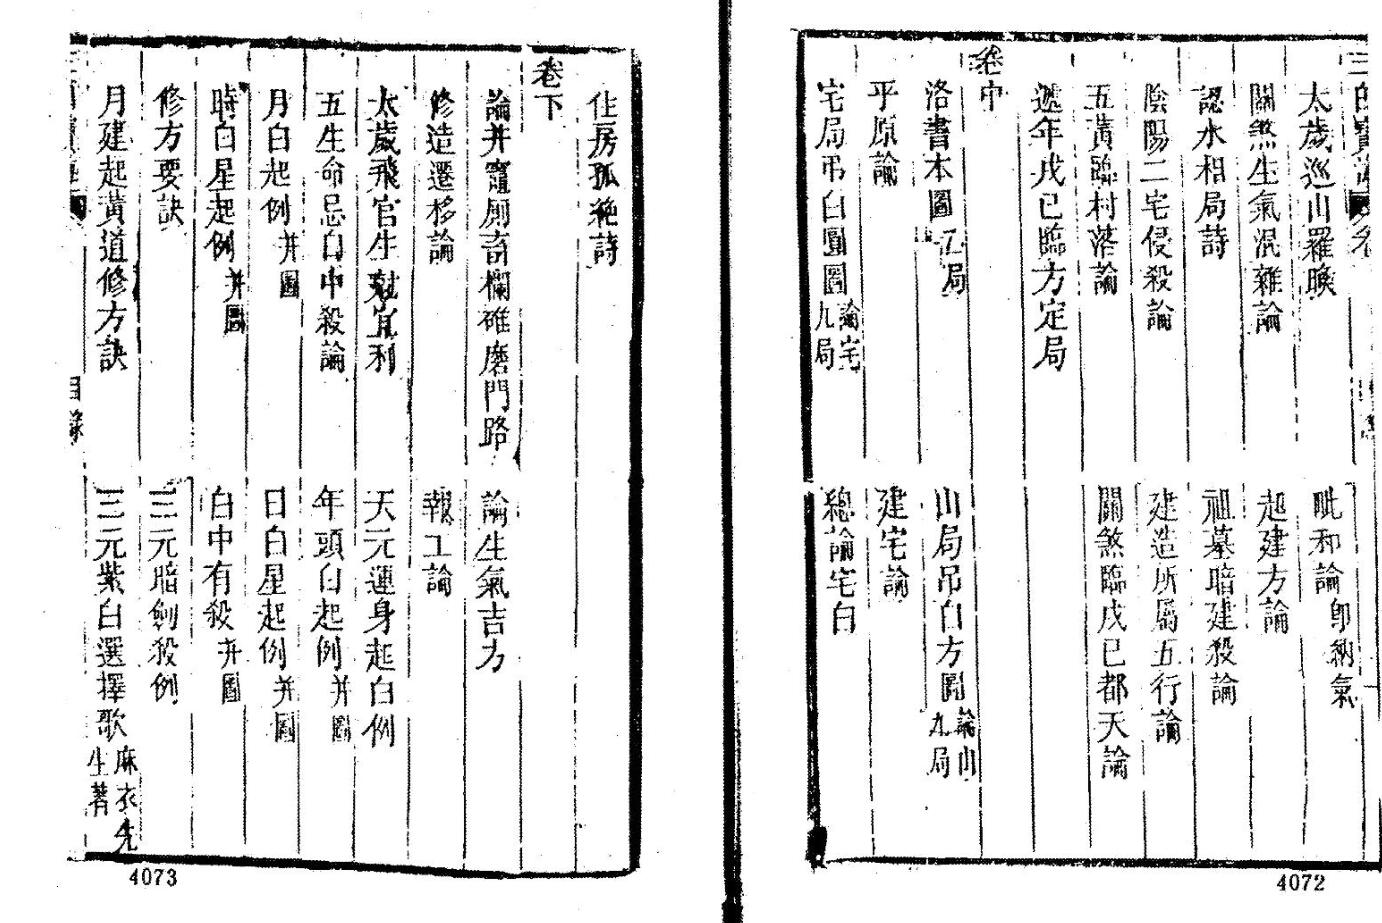 三白寶海
太歲巡山羅睺 毗和論即納氣
關煞生氣混雜論 起建方論
認水相局詩 祖墓暗建殺論
陰陽二宅侵殺論 建造所屬五行論
五黃臨村落論 關煞臨戊已都天論
遞年戊已臨方定局
卷中
洛書本圖局 山局吊白方圖論山九局
平原論 建宅論
宅局弔白圓圖論宅九局 總論宅白
4072
住房孤絶詩
卷下
論井竈厠畜欄碓磨門路 論生氣吉方
修造遷移論 報工論
太歲飛官生財宜利 天元運身起白例
五生命忌白中殺論 年頭白起例并圖
月白起例并圖 日白星起例并圖
時白星起例并圖 白中有殺并圖
修方要訣 三元暗劍殺例
月建起黃道修方訣 三元紫白選擇歌麻衣先生著
目錄
4073